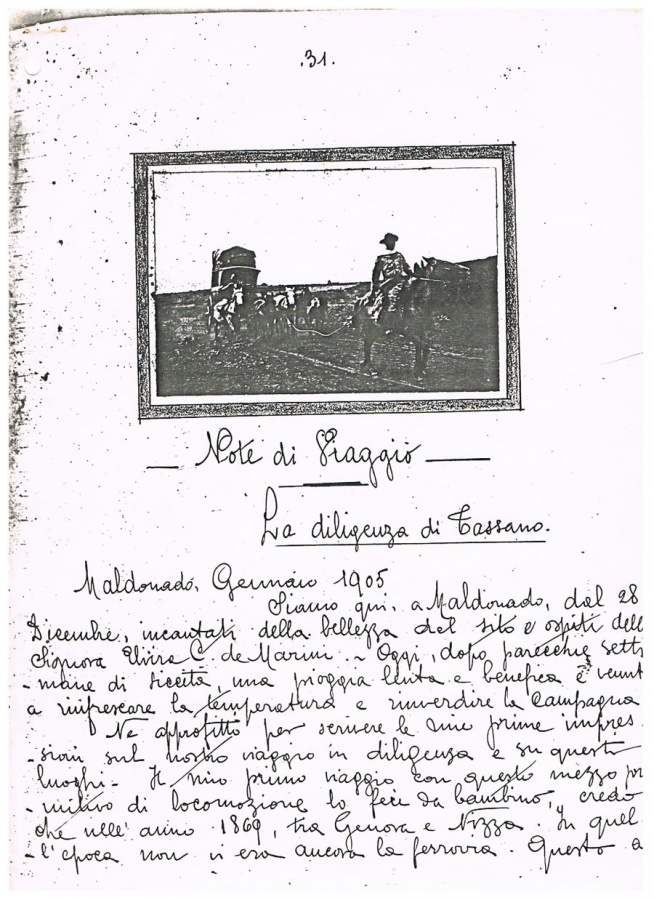 .31.
Note di Viaggio
La diligenza di Tassano.
Maldonado, Gennaio 1905
Siamo qui, a Maldonado, dal 28
Dicembre, incantati della bellezza del sito e ospiti dell
Signora Elvira C. de Marini. - Oggi, dopo parecchie setti
-mane di siccità, una pioggia lenta e benefica è venut
a rinfrescare la temperatura e rinverdire la campagna
Ne approfitto per scrivere le mie prime impres
-sioni sul nostro viaggio in diligenza e su questi
luoghi - Il mio primo viaggio con questo mezzo pri
-mitivo di locomozione lo feci da bambino, credo
che nell' anno 1869, tra Genova e Nizza. In quel
-l'epoca non vi era ancora la ferrovia. Questo a